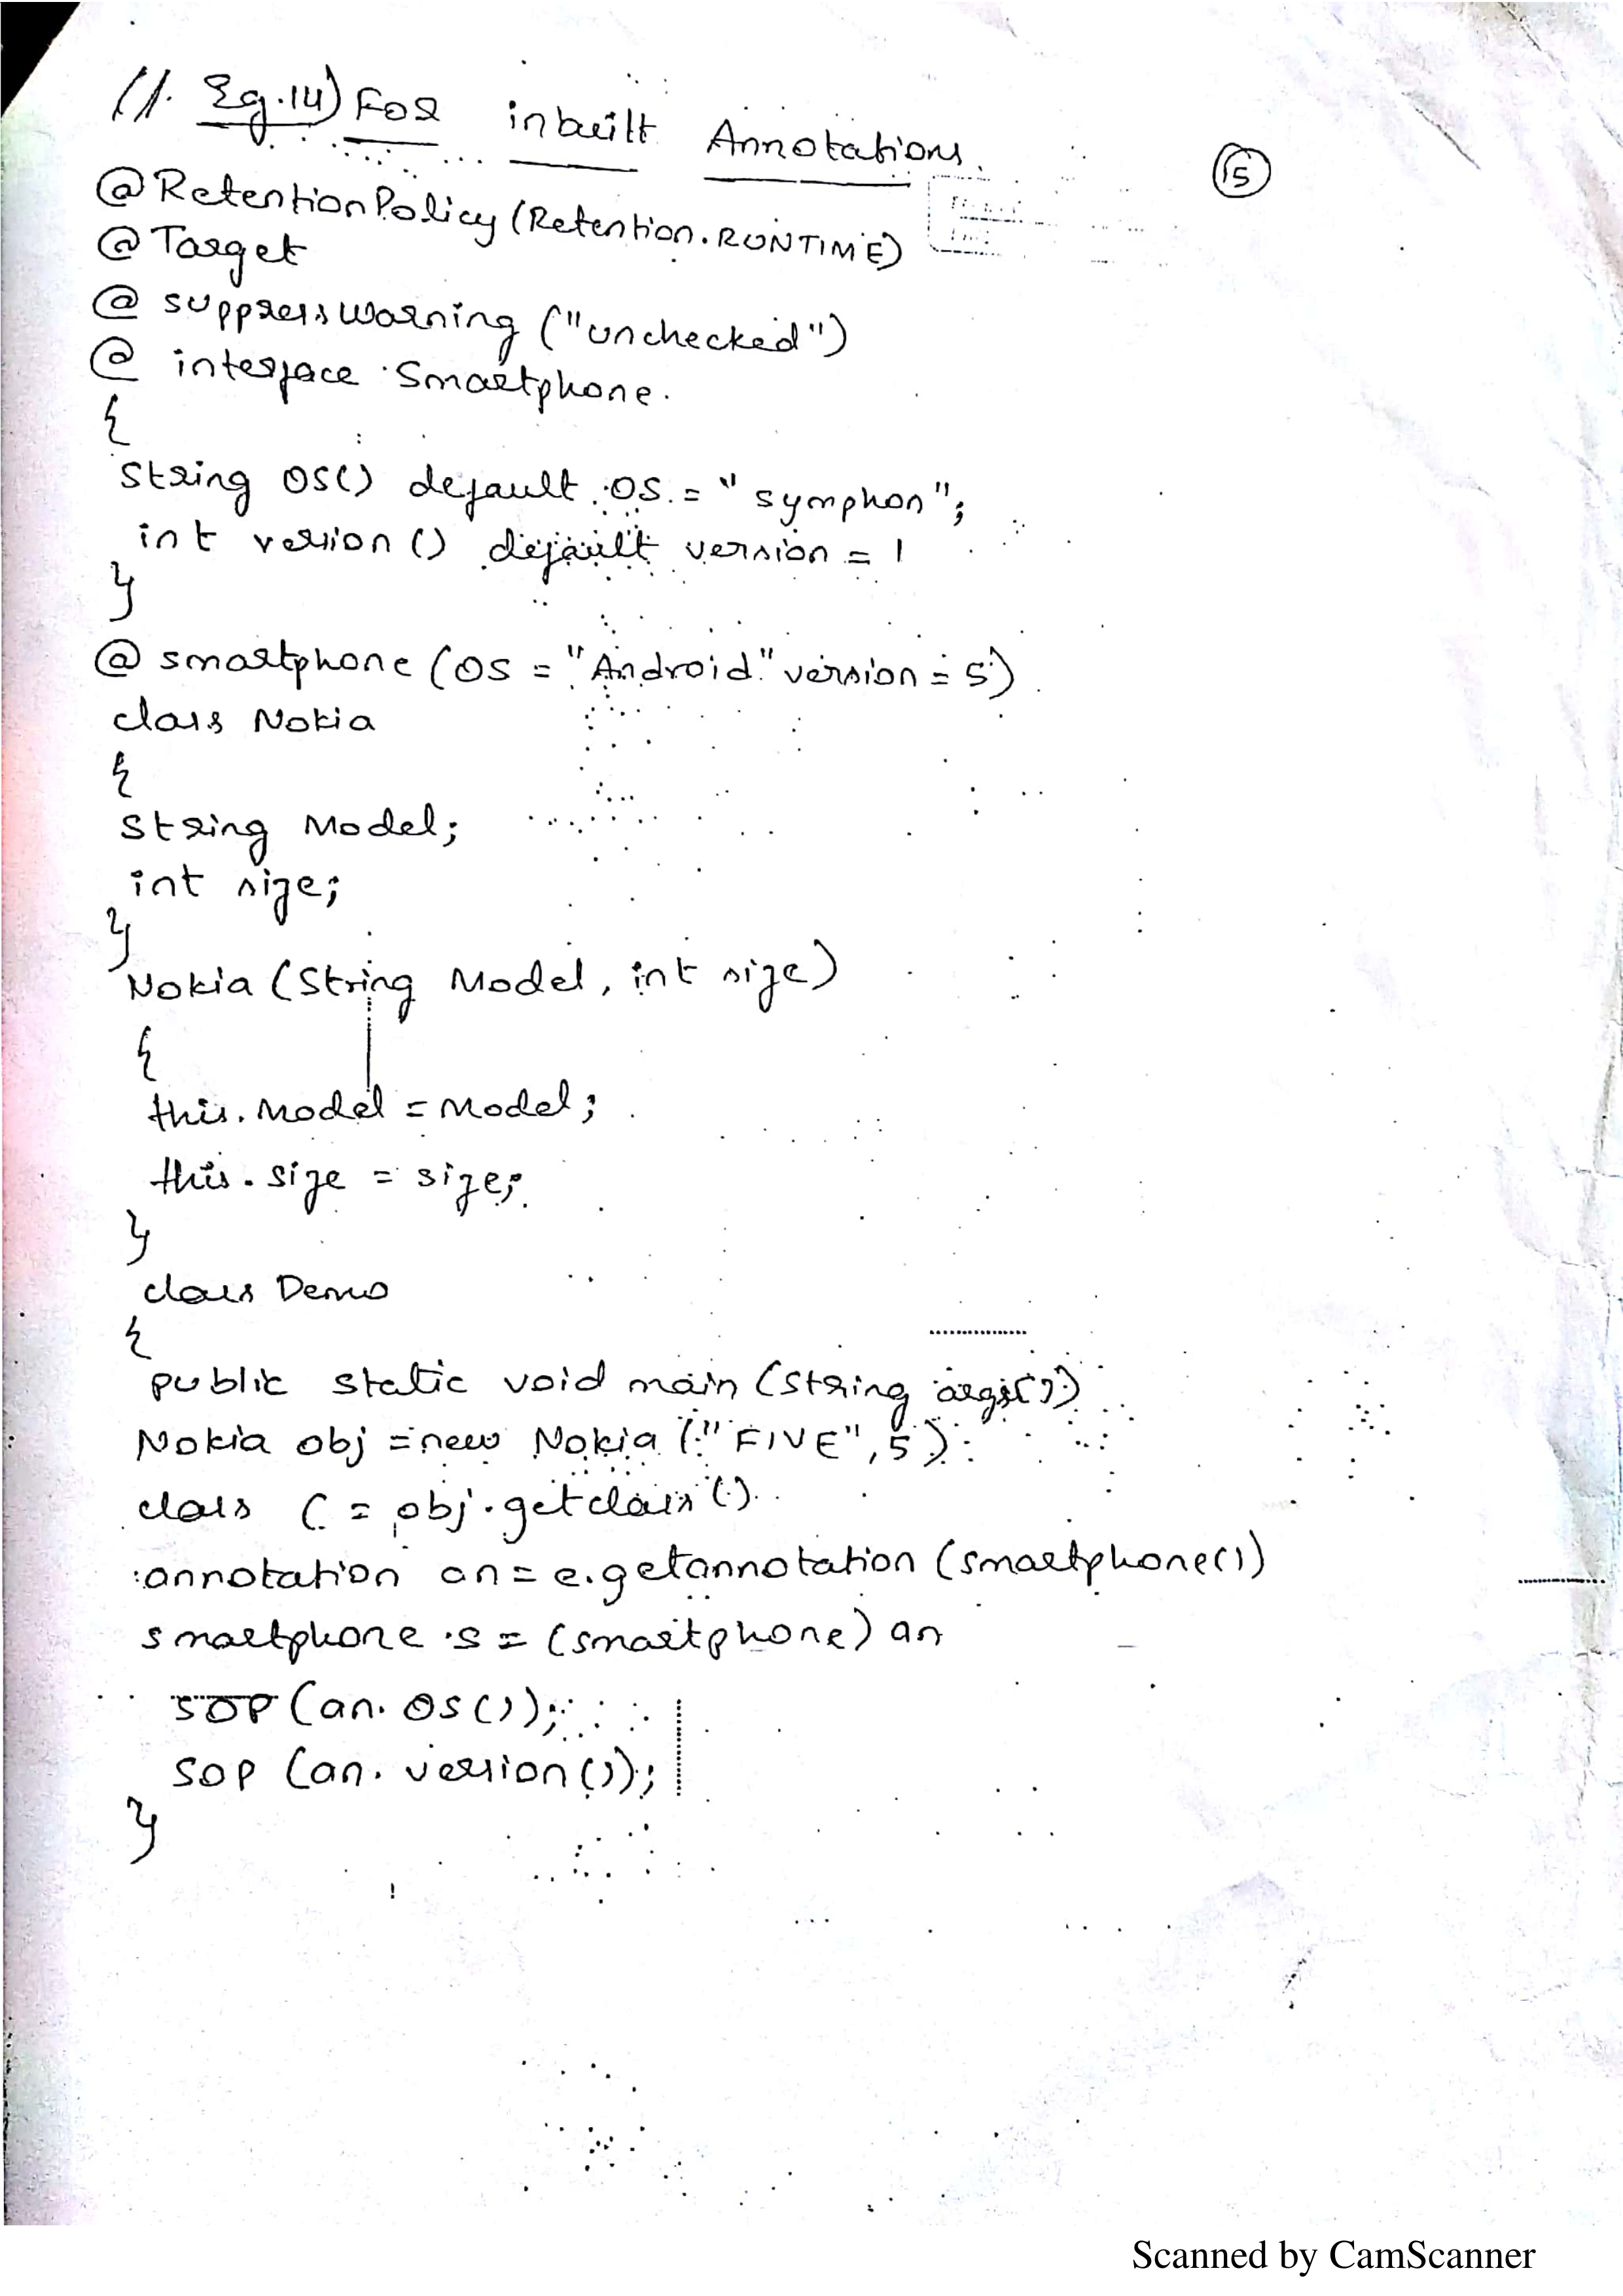 //. Eg.14) For inbuilt Annotations.
15
@RetentionPolicy (Retention.RUNTIME)
@Target
@ suppressWarning ("unchecked")
@ interface Smartphone.
{
String OS() default OS = "symphon";
int version () default version = 1
}
@ smartphone (OS = "Android" version = 5)
class Nokia
{
String Model;
int size;
}
Nokia (String Model, int size)
{
this.Model = Model;
this.size = size;
}
class Demo
{
public static void main (String args[])
Nokia obj = new Nokia ("FIVE", 5)
class C = obj.getclass ()
annotation an = e.getannotation (smartphone())
smartphone s = (smartphone) an
SOP (an. OS ());
SOP (an. version());
}
Scanned by CamScanner